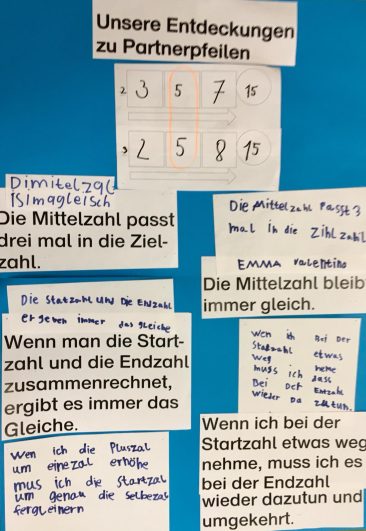 Unsere Entdeckungen
zu Partnerpfeilen
2 3 5 7 15
3 2 5 8 15
Dimitelzal
isimagleisch
Die Mittelzahl passt
drei mal in die Ziel-
zahl.
Die Mittelzahl Passt 3
mal in die Zihlzahl
EMMA valentino
Die Mittelzahl bleib
immer gleich.
Die Statzahl und Die Endzahl
ergeben immer das gleiche
Wenn man die Start-
zahl und die Endzahl
zusammenrechnet,
ergibt es immer das
Gleiche.
wen ich Bei Der
Statzahl etwas
weg neme
muss ich dass
Bei Der Entzahl
wieder Da zutun.
Wenn ich bei der
Startzahl etwas weg
nehme, muss ich es
bei der Endzahl
wieder dazutun und
umgekehrt.
wen ich die Pluszal
um einezal erhöhe
mus ich die Startzal
um genau die selbezal
fergleinern